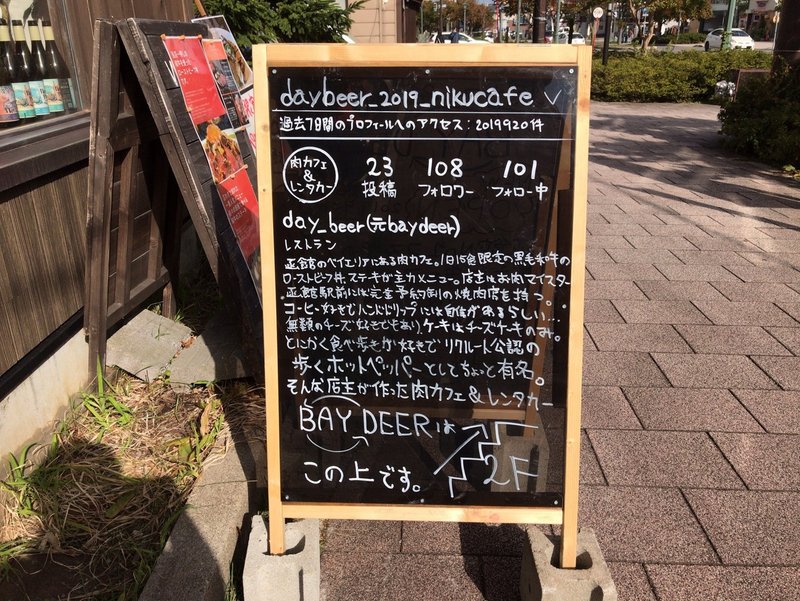 daybeer_2019_nikucafe
過去7日間のプロフィールへのアクセス:20199201件
肉カフェ
&
レンタカー
23 108 101
投稿 フォロワー フォロー中
day_beer(元baydeer)
レストラン
函館のベイエリアにある肉カフェ。1日15食限定の黒毛和牛の
ローストビーフ丼、ステーキが主力メニュー。店主はお肉マイスター
函館駅前には完全予約制の焼肉店を持つ。
コーヒー好きでハンドドリップには自信があるらしい…
無類のチーズ好きでもありケーキはチーズケーキのみ。
とにかく食べ歩きが好きでリクルート公認の
歩くホットペッパーとしてちょっと有名。
そんな店主が作った肉カフェ&レンタカー
BAY DEERは
この上です。
2F